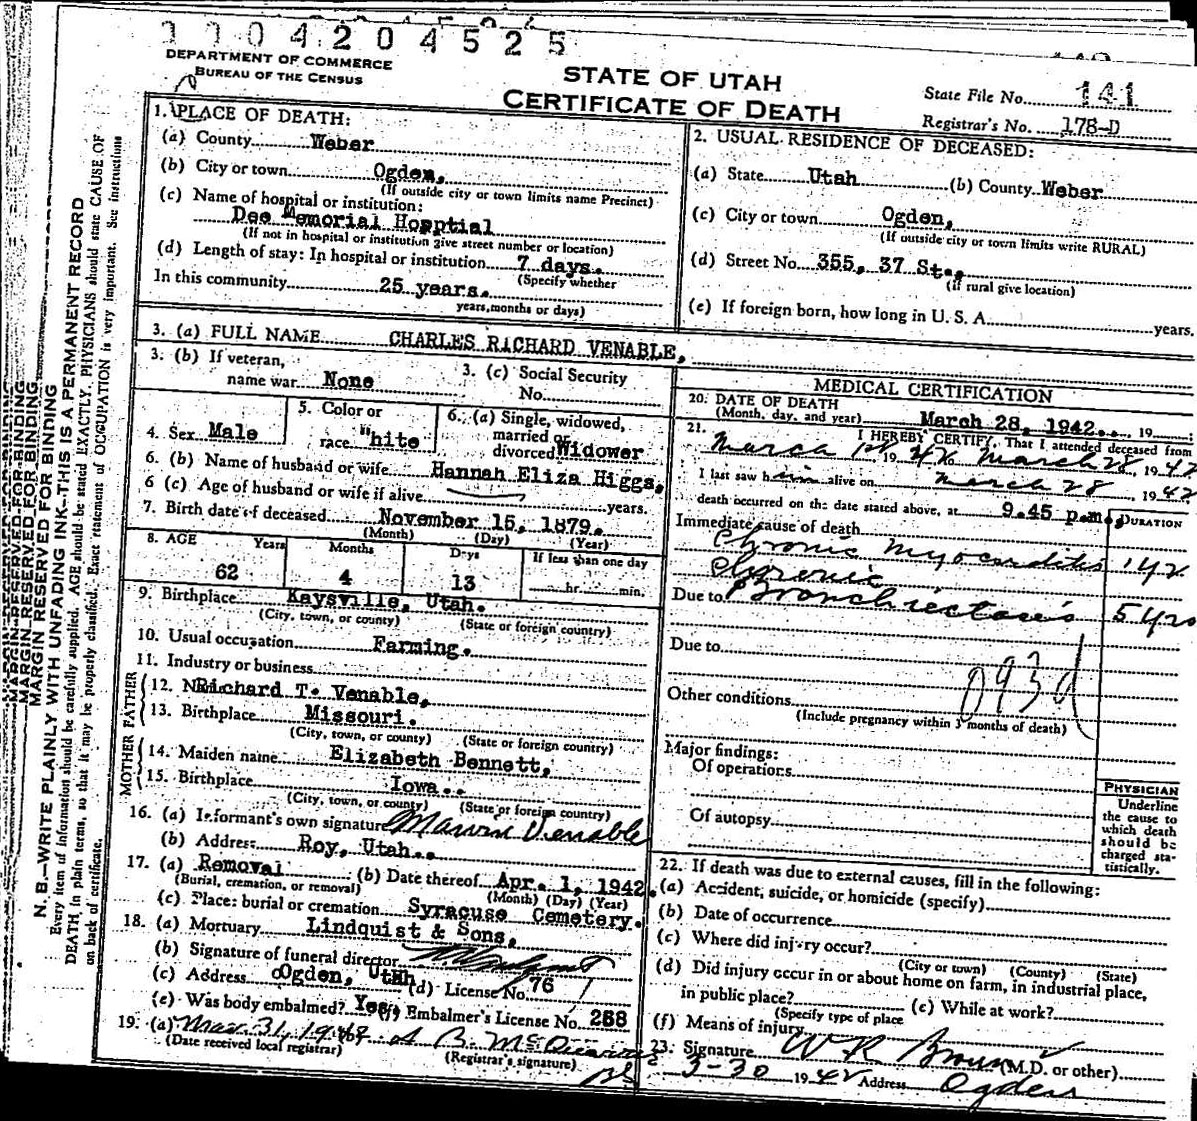 11042045 25
DEPARTMENT OF COMMERCE
BUREAU OF THE CENSUS
STATE OF UTAH
CERTIFICATE OF DEATH
State File No. 141
Registrar's No. 178-D
1. PLACE OF DEATH:
(a) County Weber
(b) City or town Ogden,
(If outside city or town limits name Precinct)
(c) Name of hospital or institution:
Dee Memorial Hosptial
(If not in hospital or institution give street number or location)
(d) Length of stay: In hospital or institution 7 days.
(Specify whether
In this community 25 years.
years, months or days)
2. USUAL RESIDENCE OF DECEASED:
(a) State Utah (b) County Weber
(c) City or town Ogden,
(If outside city or town limits write RURAL)
(d) Street No. 355, 37 St.,
(If rural give location)
(e) If foreign born, how long in U. S. A. years.
3. (a) FULL NAME CHARLES RICHARD VENABLE,
3. (b) If veteran,
name war None
3. (c) Social Security
No.
4. Sex Male
5. Color or
race "hite
6. (a) Single, widowed,
married or
divorced Widower
6. (b) Name of husband or wife Hannah Eliza Higgs,
6 (c) Age of husband or wife if alive years.
7. Birth date of deceased November 15, 1879.
(Month) (Day) (Year)
8. AGE Years Months Days If less than one day
62 4 13 hr. min.
9. Birthplace Kaysville, Utah.
(City, town, or county) (State or foreign country)
10. Usual occupation Farming.
11. Industry or business
FATHER
12. Richard T. Venable,
13. Birthplace Missouri.
(City, town, or county) (State or foreign country)
MOTHER
14. Maiden name Elizabeth Bennett,
15. Birthplace Iowa..
(City, town, or county) (State or foreign country)
16. (a) Informant's own signature Marvin Venable
(b) Address Roy, Utah..
17. (a) Removal (b) Date thereof Apr. 1, 1942.
(Burial, cremation, or removal) (Month) (Day) (Year)
(c) Place: burial or cremation Syracuse Cemetery.
18. (a) Mortuary Lindquist & Sons,
(b) Signature of funeral director
(c) Address Ogden, Utah (d) License No. 76
(e) Was body embalmed? Yes (f) Embalmer's License No. 268
19. (a) Mar 31, 1942
(Date received local registrar) (Registrar's signature)
MEDICAL CERTIFICATION
20. DATE OF DEATH
(Month, day, and year) March 28, 1942.. 19
21. I HEREBY CERTIFY, That I attended deceased from
March 1st 1942 to March 28, 1942
I last saw him alive on March 28, 1942
death occurred on the date stated above, at 9.45 p.m.
DURATION
Immediate cause of death
Chronic Myocarditis 1 yr
Chronic
Due to Bronchiectasis 5 yrs
Due to
093d
Other conditions
(Include pregnancy within 3 months of death)
Major findings:
Of operations
Of autopsy
PHYSICIAN
Underline
the cause to
which death
should be
charged sta-
tistically.
22. If death was due to external causes, fill in the following:
(a) Accident, suicide, or homicide (specify)
(b) Date of occurrence
(c) Where did injury occur?
(City or town) (County) (State)
(d) Did injury occur in or about home on farm, in industrial place,
in public place? (e) While at work?
(Specify type of place
(f) Means of injury
23. Signature W R Brown (M.D. or other)
3-30 1942 Address Ogden
MARGIN RESERVED FOR BINDING
N. B.—WRITE PLAINLY WITH UNFADING INK—THIS IS A PERMANENT RECORD
Every item of information should be carefully supplied. AGE should be stated EXACTLY. PHYSICIANS should state CAUSE OF
DEATH in plain terms, so that it may be properly classified. Exact statement of OCCUPATION is very important. See instructions
on back of certificate.